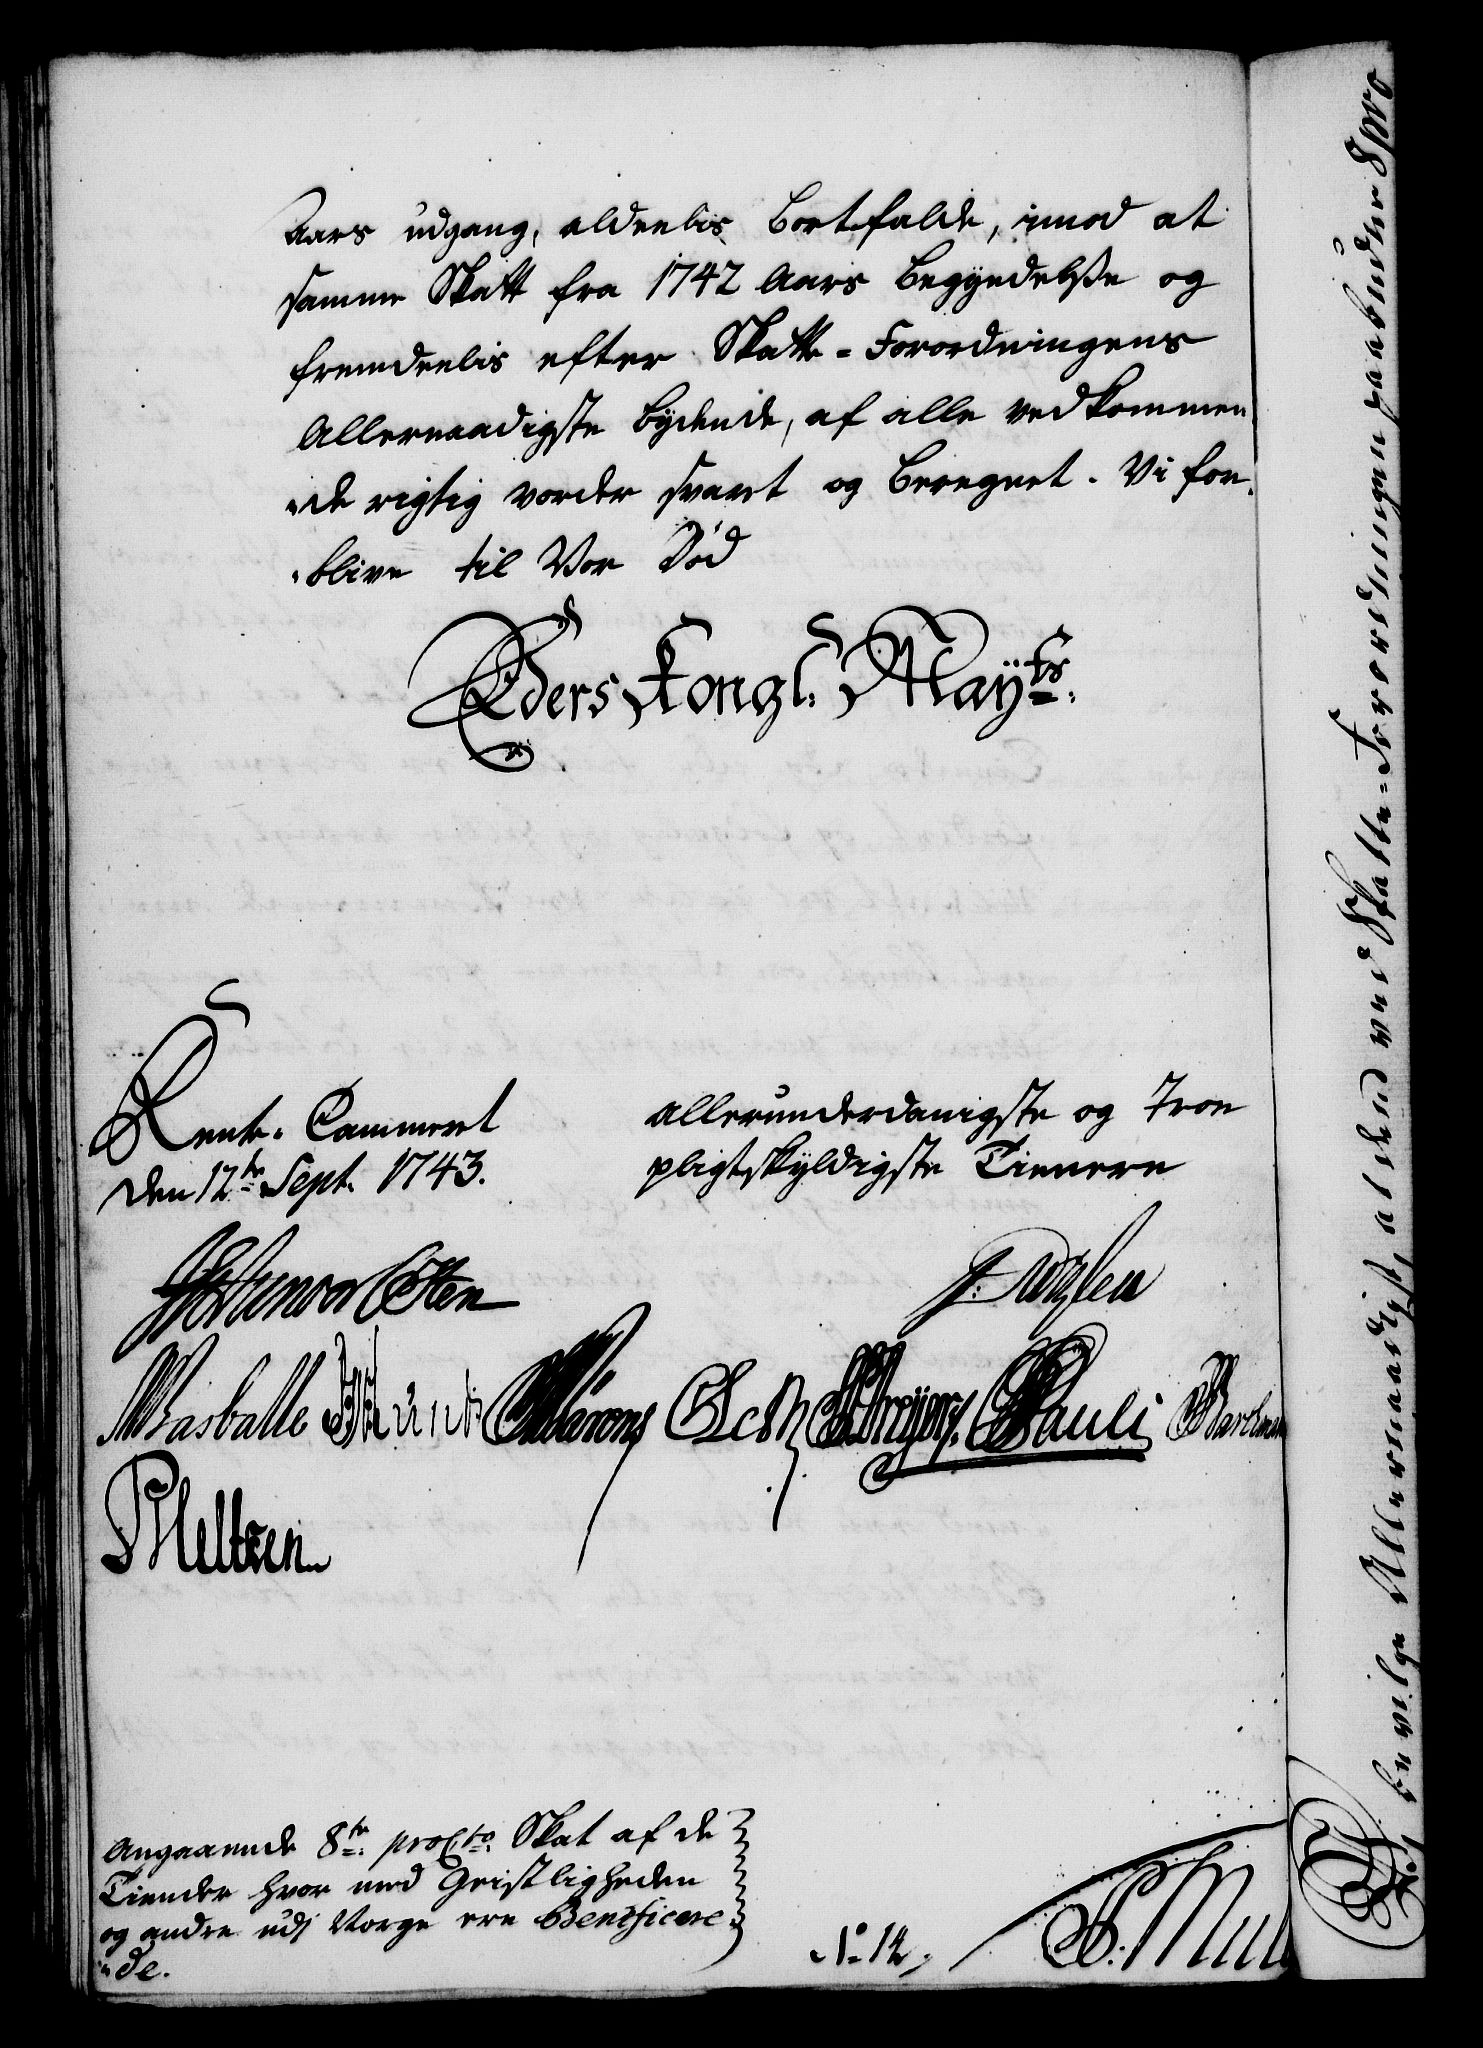 Aars udgang, aldeelis bortfalde, imod at
samme Skatt fra 1742 Aars Begyndelsse og
fremdeelis efter Skatte-Forordningens
Allernaadigste bydende, af alle vedkommen
de rigtig vorder svaret og beregnet. Vi for
blive til Vor Død
Eders Kongl: Mayts:
Rente-Cammeret
den 12te Sept. 1743.
allerunderdanigste og Troe
pligtskyldigste Tienere
Masballe
Pauli
Meltzen
Angaaende 8te proCto Skat af de
Tiender hvor med Geistligheden
og andre udj Norge ere Beneficere
de.
No 14
Vj bevilge Allernaadigst, at den ved Skatte-Forordningen paabudne 8 pro